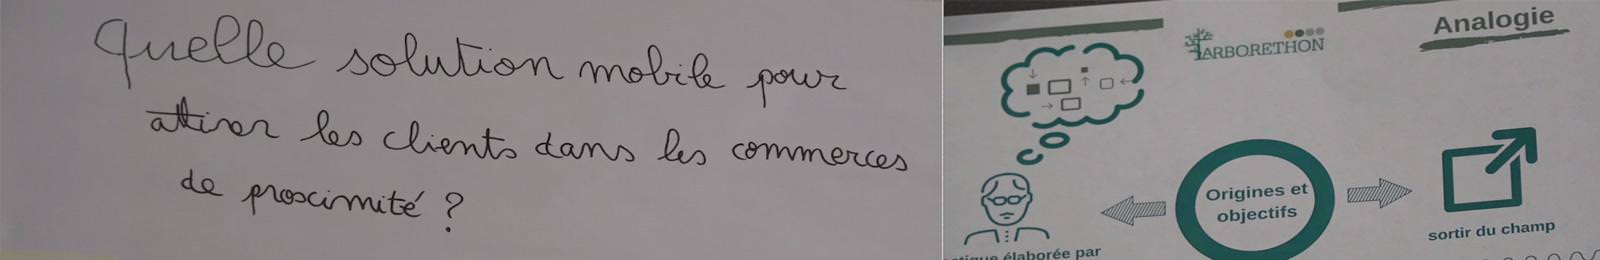 Quelle solution mobile pour
attirer les clients dans les commerces
de proximité ?
ARBORETHON
Analogie
Origines et
objectifs
sortir du champ
élaborée par